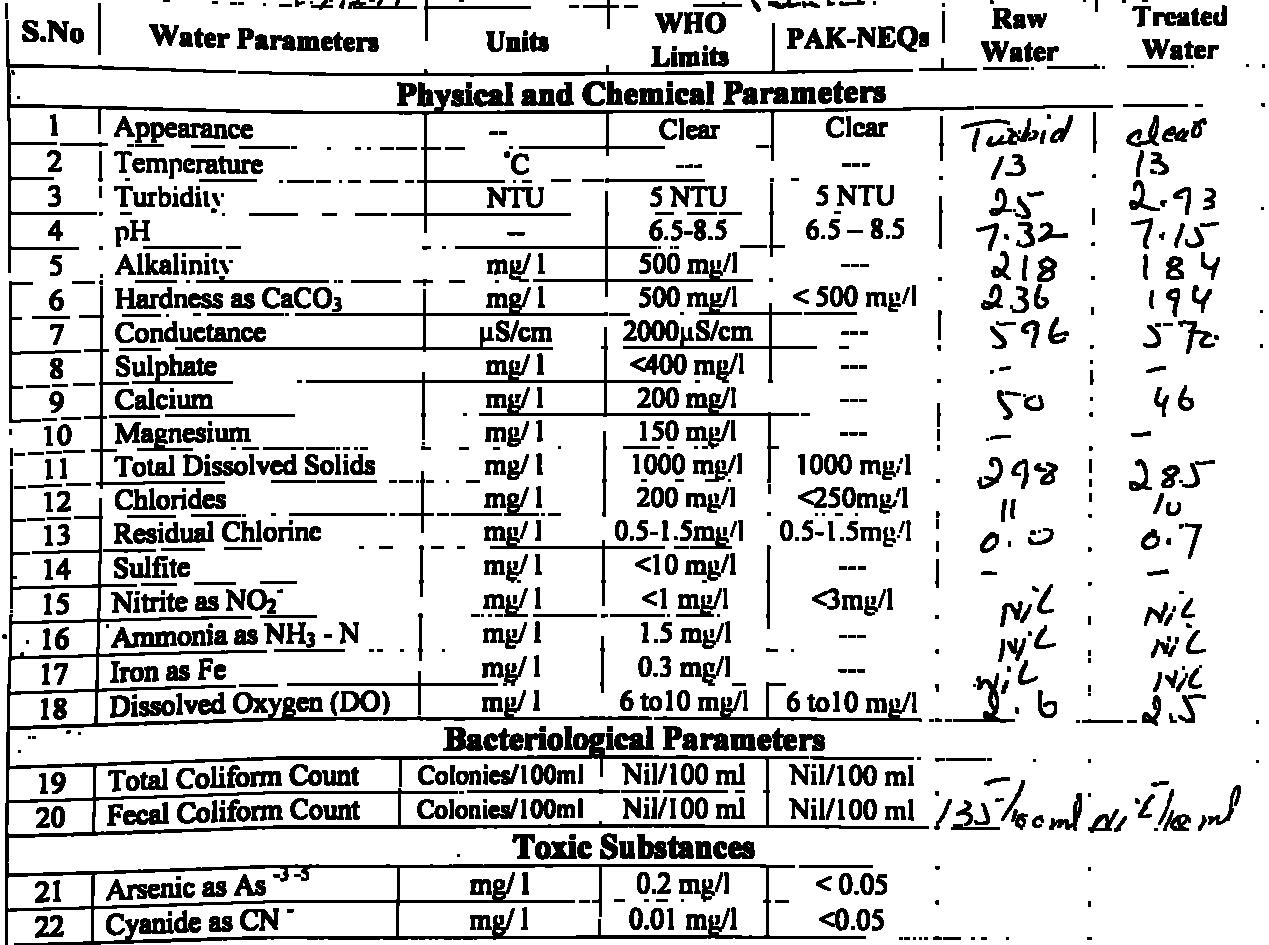 S.No Water Parameters Units WHO Limits PAK-NEQs Raw Water Treated Water
Physical and Chemical Parameters
1 Appearance -- Clear Clear Turbid clear
2 Temperature °C --- --- 13 13
3 Turbidity NTU 5 NTU 5 NTU 25 2.93
4 pH -- 6.5-8.5 6.5 – 8.5 7.32 7.15
5 Alkalinity mg/ l 500 mg/l --- 218 184
6 Hardness as CaCO₃ mg/ l 500 mg/l < 500 mg/l 236 194
7 Conductance µS/cm 2000µS/cm --- 596 570
8 Sulphate mg/ l <400 mg/l --- - -
9 Calcium mg/ l 200 mg/l --- 50 46
10 Magnesium mg/ l 150 mg/l --- - -
11 Total Dissolved Solids mg/ l 1000 mg/l 1000 mg/l 298 285
12 Chlorides mg/ l 200 mg/l <250mg/l 11 10
13 Residual Chlorine mg/ l 0.5-1.5mg/l 0.5-1.5mg/l 0.0 0.7
14 Sulfite mg/ l <10 mg/l --- - -
15 Nitrite as NO₂⁻ mg/ l <1 mg/l <3mg/l Nil Nil
16 Ammonia as NH₃ - N mg/ l 1.5 mg/l --- Nil Nil
17 Iron as Fe mg/ l 0.3 mg/l --- Nil Nil
18 Dissolved Oxygen (DO) mg/ l 6 to10 mg/l 6 to10 mg/l 2.6 2.5
Bacteriological Parameters
19 Total Coliform Count Colonies/100ml Nil/100 ml Nil/100 ml - -
20 Fecal Coliform Count Colonies/100ml Nil/100 ml Nil/100 ml 135/100ml Nil/100ml
Toxic Substances
21 Arsenic as As ⁻³ ⁻⁵ mg/ l 0.2 mg/l < 0.05
22 Cyanide as CN⁻ mg/ l 0.01 mg/l <0.05